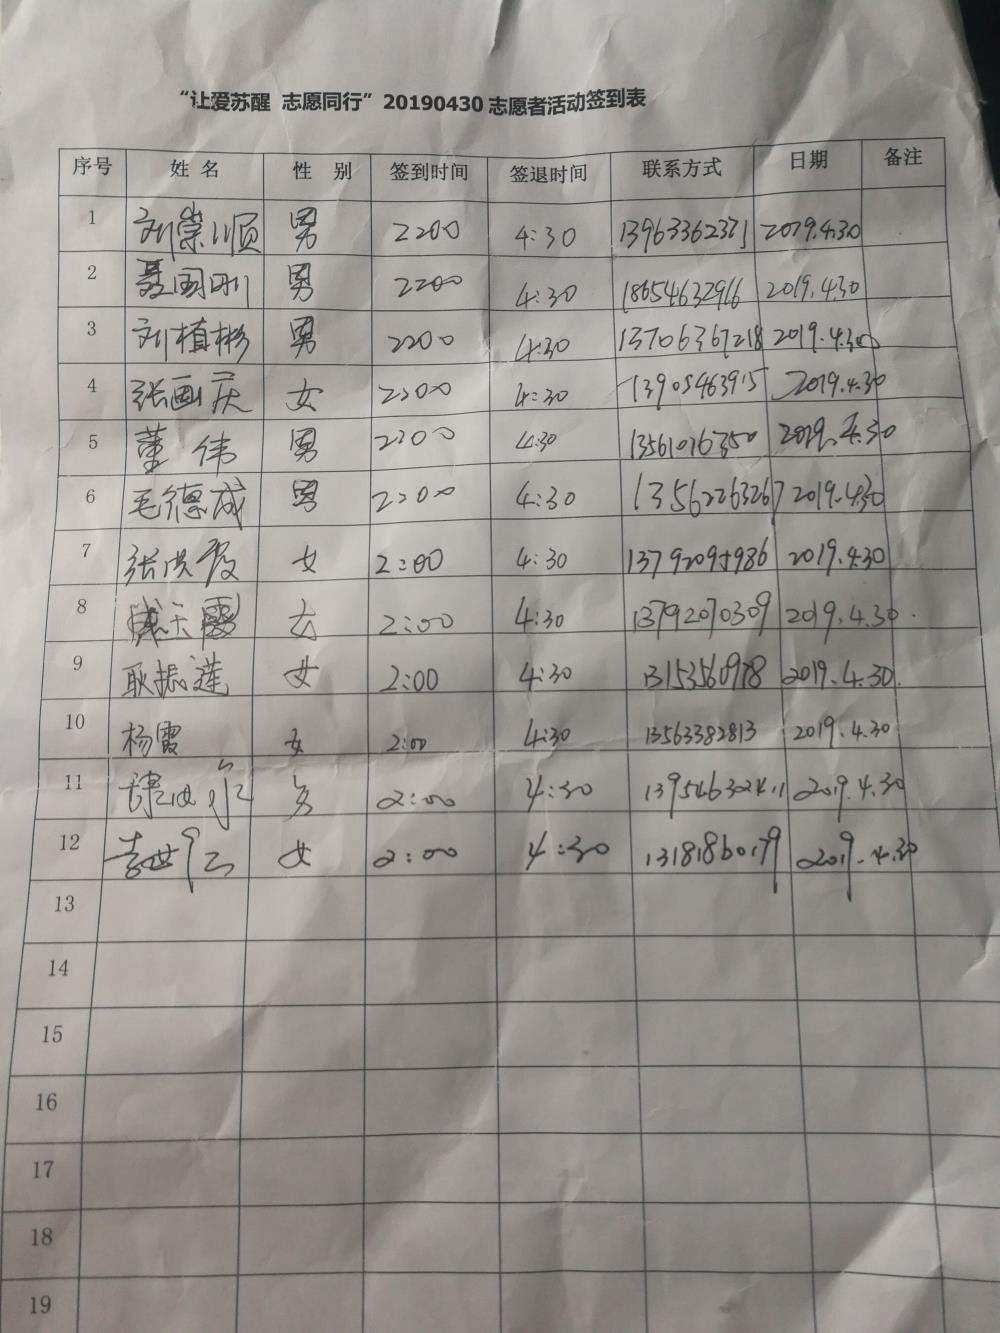 “让爱苏醒 志愿同行”20190430志愿者活动签到表
序号 姓 名 性 别 签到时间 签退时间 联系方式 日期 备注
1 刘崇顺 男 2200 4:30 13963362371 2019.4.30
2 国刚 男 2200 4:30 18654632966 2019.4.30
3 刘植彬 男 2200 4:30 13706367218 2019.4.30
4 张画庆 女 2200 4:30 13905463915 2019.4.30
5 董伟 男 2200 4:30 13561076350 2019.4.30
6 毛德成 男 2200 4:30 13562263267 2019.4.30
7 张洪霞 女 2:00 4:30 13792095986 2019.4.30
8 女 2:00 4:30 13792070309 2019.4.30.
9 耿振莲 女 2:00 4:30 2019.4.30.
10 杨霞 女 2:00 4:30 13563382813 2019.4.30
11 2:00 4:30 13954632411 2019.4.30
12 女 2:00 4:30 13181860179 2019.4.30
13
14
15
16
17
18
19